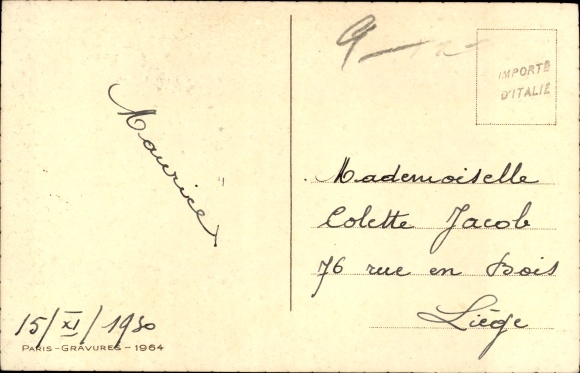 Maurice
15/XI/1930
PARIS-GRAVURES - 1964
IMPORTÉ
D'ITALIE
Mademoiselle
Colette Jacob
76 rue en Bois
Liège